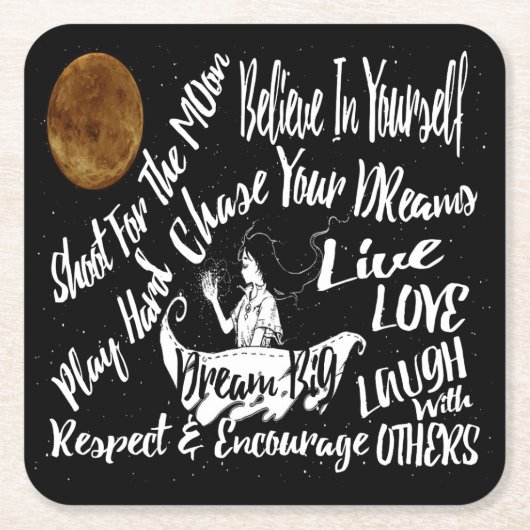 Believe In Yourself
Shoot For The MOon
Chase Your DReams
Play Hard
Live
LOVE
LAUGH
With
OTHERS
Dream Big
Respect & Encourage